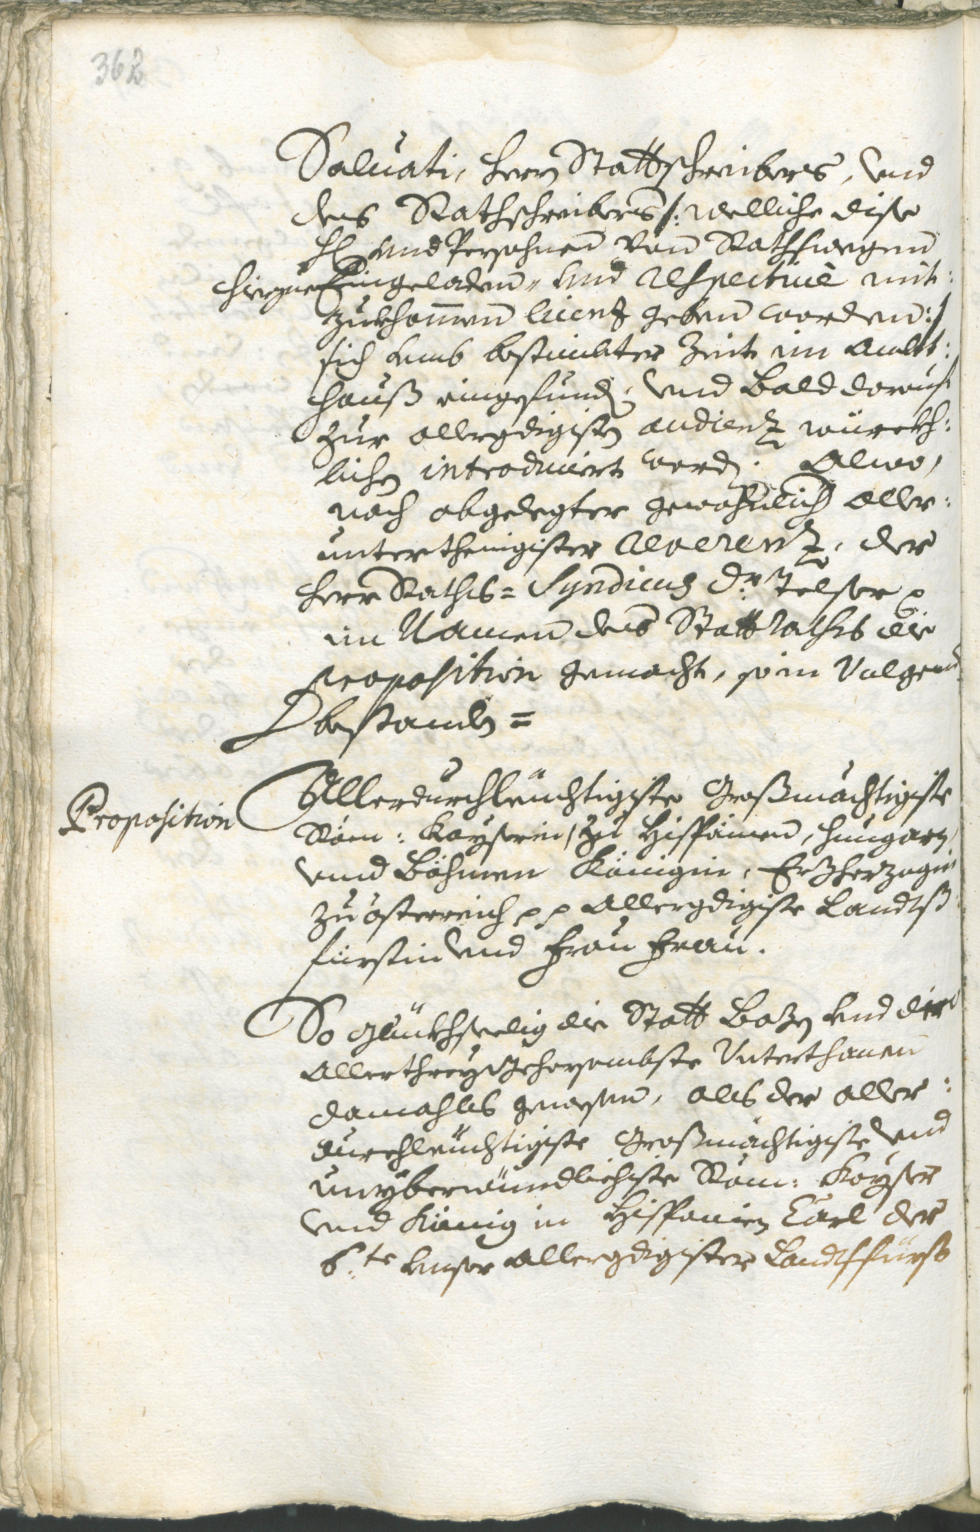 362
Salvati, Herrn Stattschreibers, vnd
des Rathschreibers /: welliche dise
H: vnd Persohnen vom Rathswegen
hierzue Eingeladen, vnd respectivè mit:
zukhommen licenz geben worden :/
sich umb bestimbter Zeit im Ambt:
hauß eingefunden, vnd bald darauf
zur allergdigisten audienz würckh:
lichen introduciert worden. Alwo,
nach abgelegter gewohnlich aller:
unterthenigister reverenz, der
Herr Raths= Syndicus Dr. Telser p
im Namen des Statt Raths die
proposition gemacht, so in Volgend
bestanden =
Proposition
Allerdurchleuchtigiste Großmächtigiste
Röm: Kayserin, zu Hispanien, Hungarn,
vnd Böhmen Königin, Erzherzogin
zu österreich p p Allergdigiste Landts
fürstin vnd Frau Frau.
So glückhseelig die Statt Bozen vnd dero
Allerthreygehorsambste Vnterthanen
damahls gewesen, als der aller:
durchleuchtigiste Großmächtigiste vnd
unyberwündlichiste Röm: Kayser
vnd König in Hispanien Carl der
6.te unser Allergdigister Landtsfürst